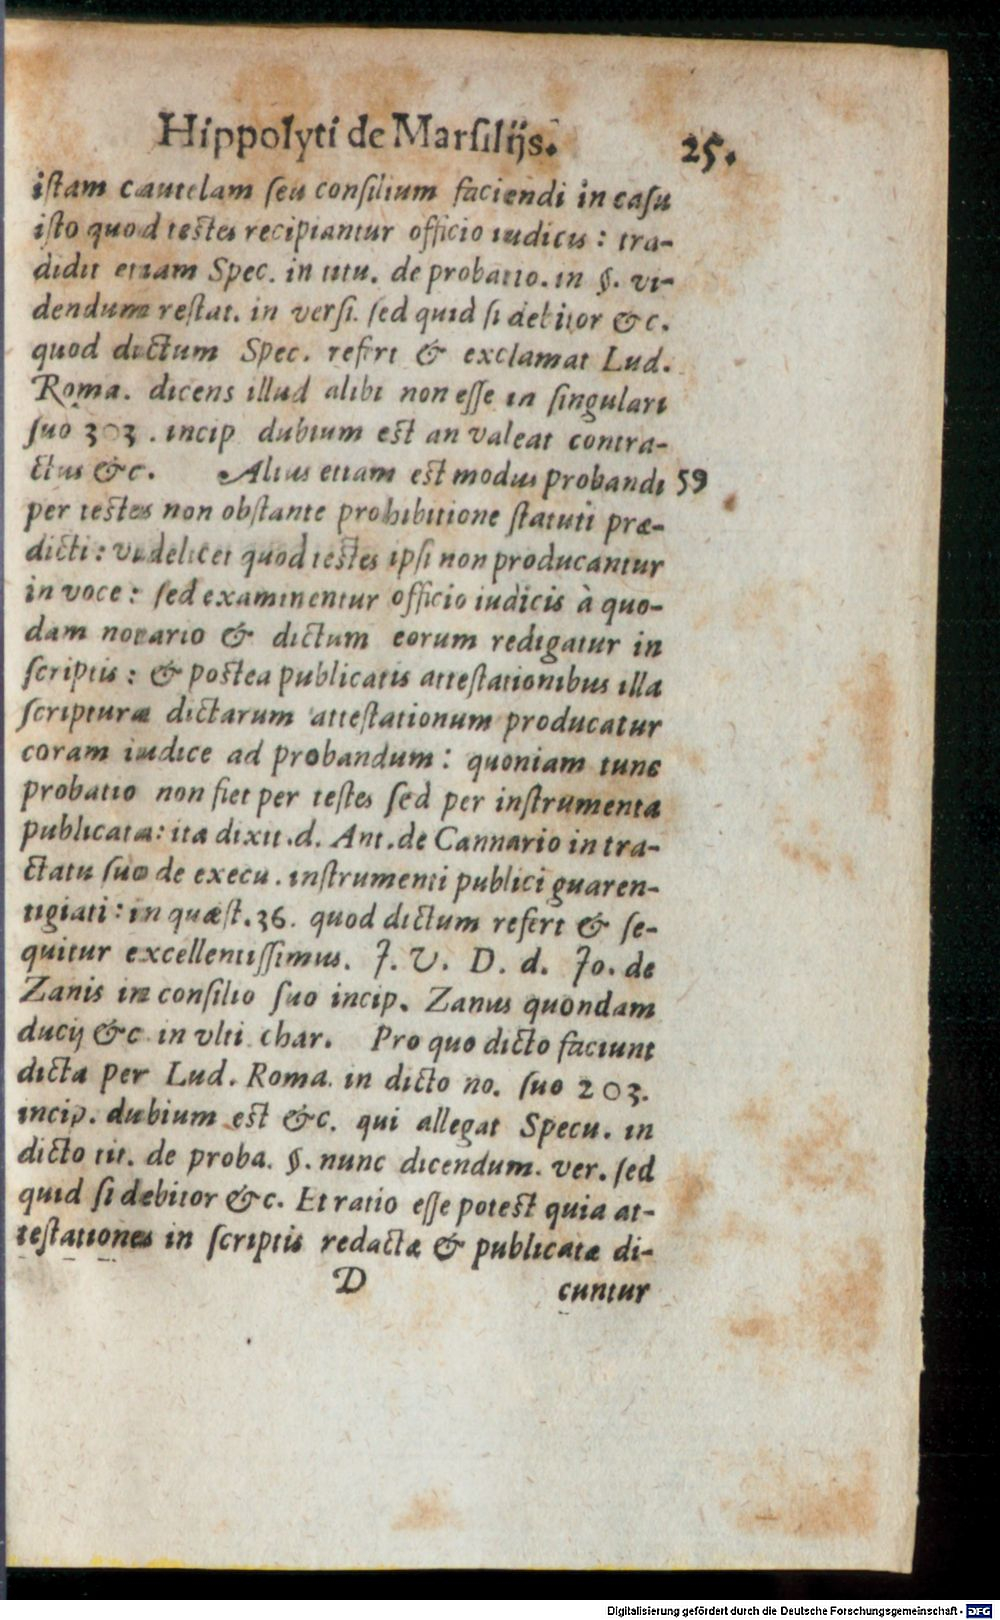 Hippolyti de Marsilijs. 25.
istam cautelam seu consilium faciendi in casu
isto quod testes recipiantur officio iudicis : tra-
didit etiam Spec. in titu. de probatio. in §. vi-
dendum restat. in versi. sed quid si debitor &c.
quod dictum Spec. refert & exclamat Lud.
Roma. dicens illud alibi non esse in singulari
suo 303 . incip dubium est an valeat contra-
ctus &c. Alius etiam est modus probandi 59
per testes non obstante prohibitione statuti præ-
dicti : videlicet quod testes ipsi non producantur
in voce : sed examinentur officio iudicis à quo-
dam notario & dictum eorum redigatur in
scriptis : & postea publicatis attestationibus illa
scripturæ dictarum attestationum producatur
coram iudice ad probandum : quoniam tunc
probatio non fiet per testes sed per instrumenta
publicata: ita dixit .d. Ant. de Cannario in tra-
ctatu suo de execu . instrumenti publici guaren-
tigiati : in quæst. 36. quod dictum refert & se-
quitur excellentissimus. J. V. D. d. Jo. de
Zanis in consilio suo incip. Zanus quondam
ducij &c in vlti char. Pro quo dicto faciunt
dicta per Lud. Roma. in dicto no. suo 203.
incip. dubium est &c. qui allegat Specu. in
dicto tit. de proba. §. nunc dicendum. ver. sed
quid si debitor &c. Et ratio esse potest quia at-
testationes in scriptis redactæ & publicatæ di-
D cuntur
Digitalisierung gefördert durch die Deutsche Forschungsgemeinschaft - DFG